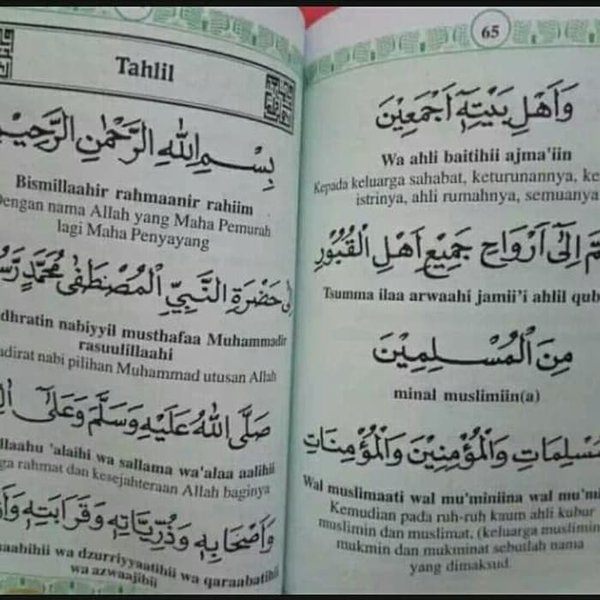 Tahlil
بِسْمِ اللهِ الرَّحْمٰنِ الرَّحِيْمِ
Bismillaahir rahmaanir rahiim
Dengan nama Allah yang Maha Pemurah
lagi Maha Penyayang
اِلٰى حَضْرَةِ النَّبِيِّ الْمُصْطَفٰى مُحَمَّدٍ
nabiyyil musthafaa Muhammadir
rasuulillaahi
nabi pilihan Muhammad utusan Allah
صَلَّى اللهُ عَلَيْهِ وَسَلَّمَ وَعَلٰى
'alaihi wa sallama wa'alaa aalihii
rahmat dan kesejahteraan Allah baginya
وَاَصْحَابِهٖ وَذُرِّيَّاتِهٖ وَقَرَابَتِهٖ
wa dzurriyyaatihii wa qaraabatihii
wa azwaajihii
65
وَاَهْلِ بَيْتِهٖٓ اَجْمَعِيْنَ
Wa ahli baitihii ajma'iin
Kepada keluarga sahabat, keturunannya,
istrinya, ahli rumahnya, semuanya
اِلٰى اَرْوَاحِ جَمِيْعِ اَهْلِ الْقُبُوْرِ
Tsumma ilaa arwaahi jamii'i ahlil
مِنَ الْمُسْلِمِيْنَ
minal muslimiin(a)
وَالْمُؤْمِنِيْنَ وَالْمُؤْمِنَاتِ
Wal muslimaati wal mu'miniina wal
Kemudian pada ruh-ruh kaum ahli kubur
muslimin dan muslimat, (keluarga muslimin
mukmin dan mukminat sebutlah nama
yang dimaksud